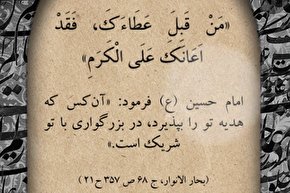 «مَنْ قَبِلَ عَطَاءَكَ، فَقَدْ
اَعَانَكَ عَلَى الْكَرَمِ»
امام حسین (ع) فرمود: «آن‌کس که
هدیه تو را بپذیرد، در بزرگواری با تو
شریک است.»
(بحار الانوار، ج ۶۸ ص ۳۵۷ ح ۲۱)